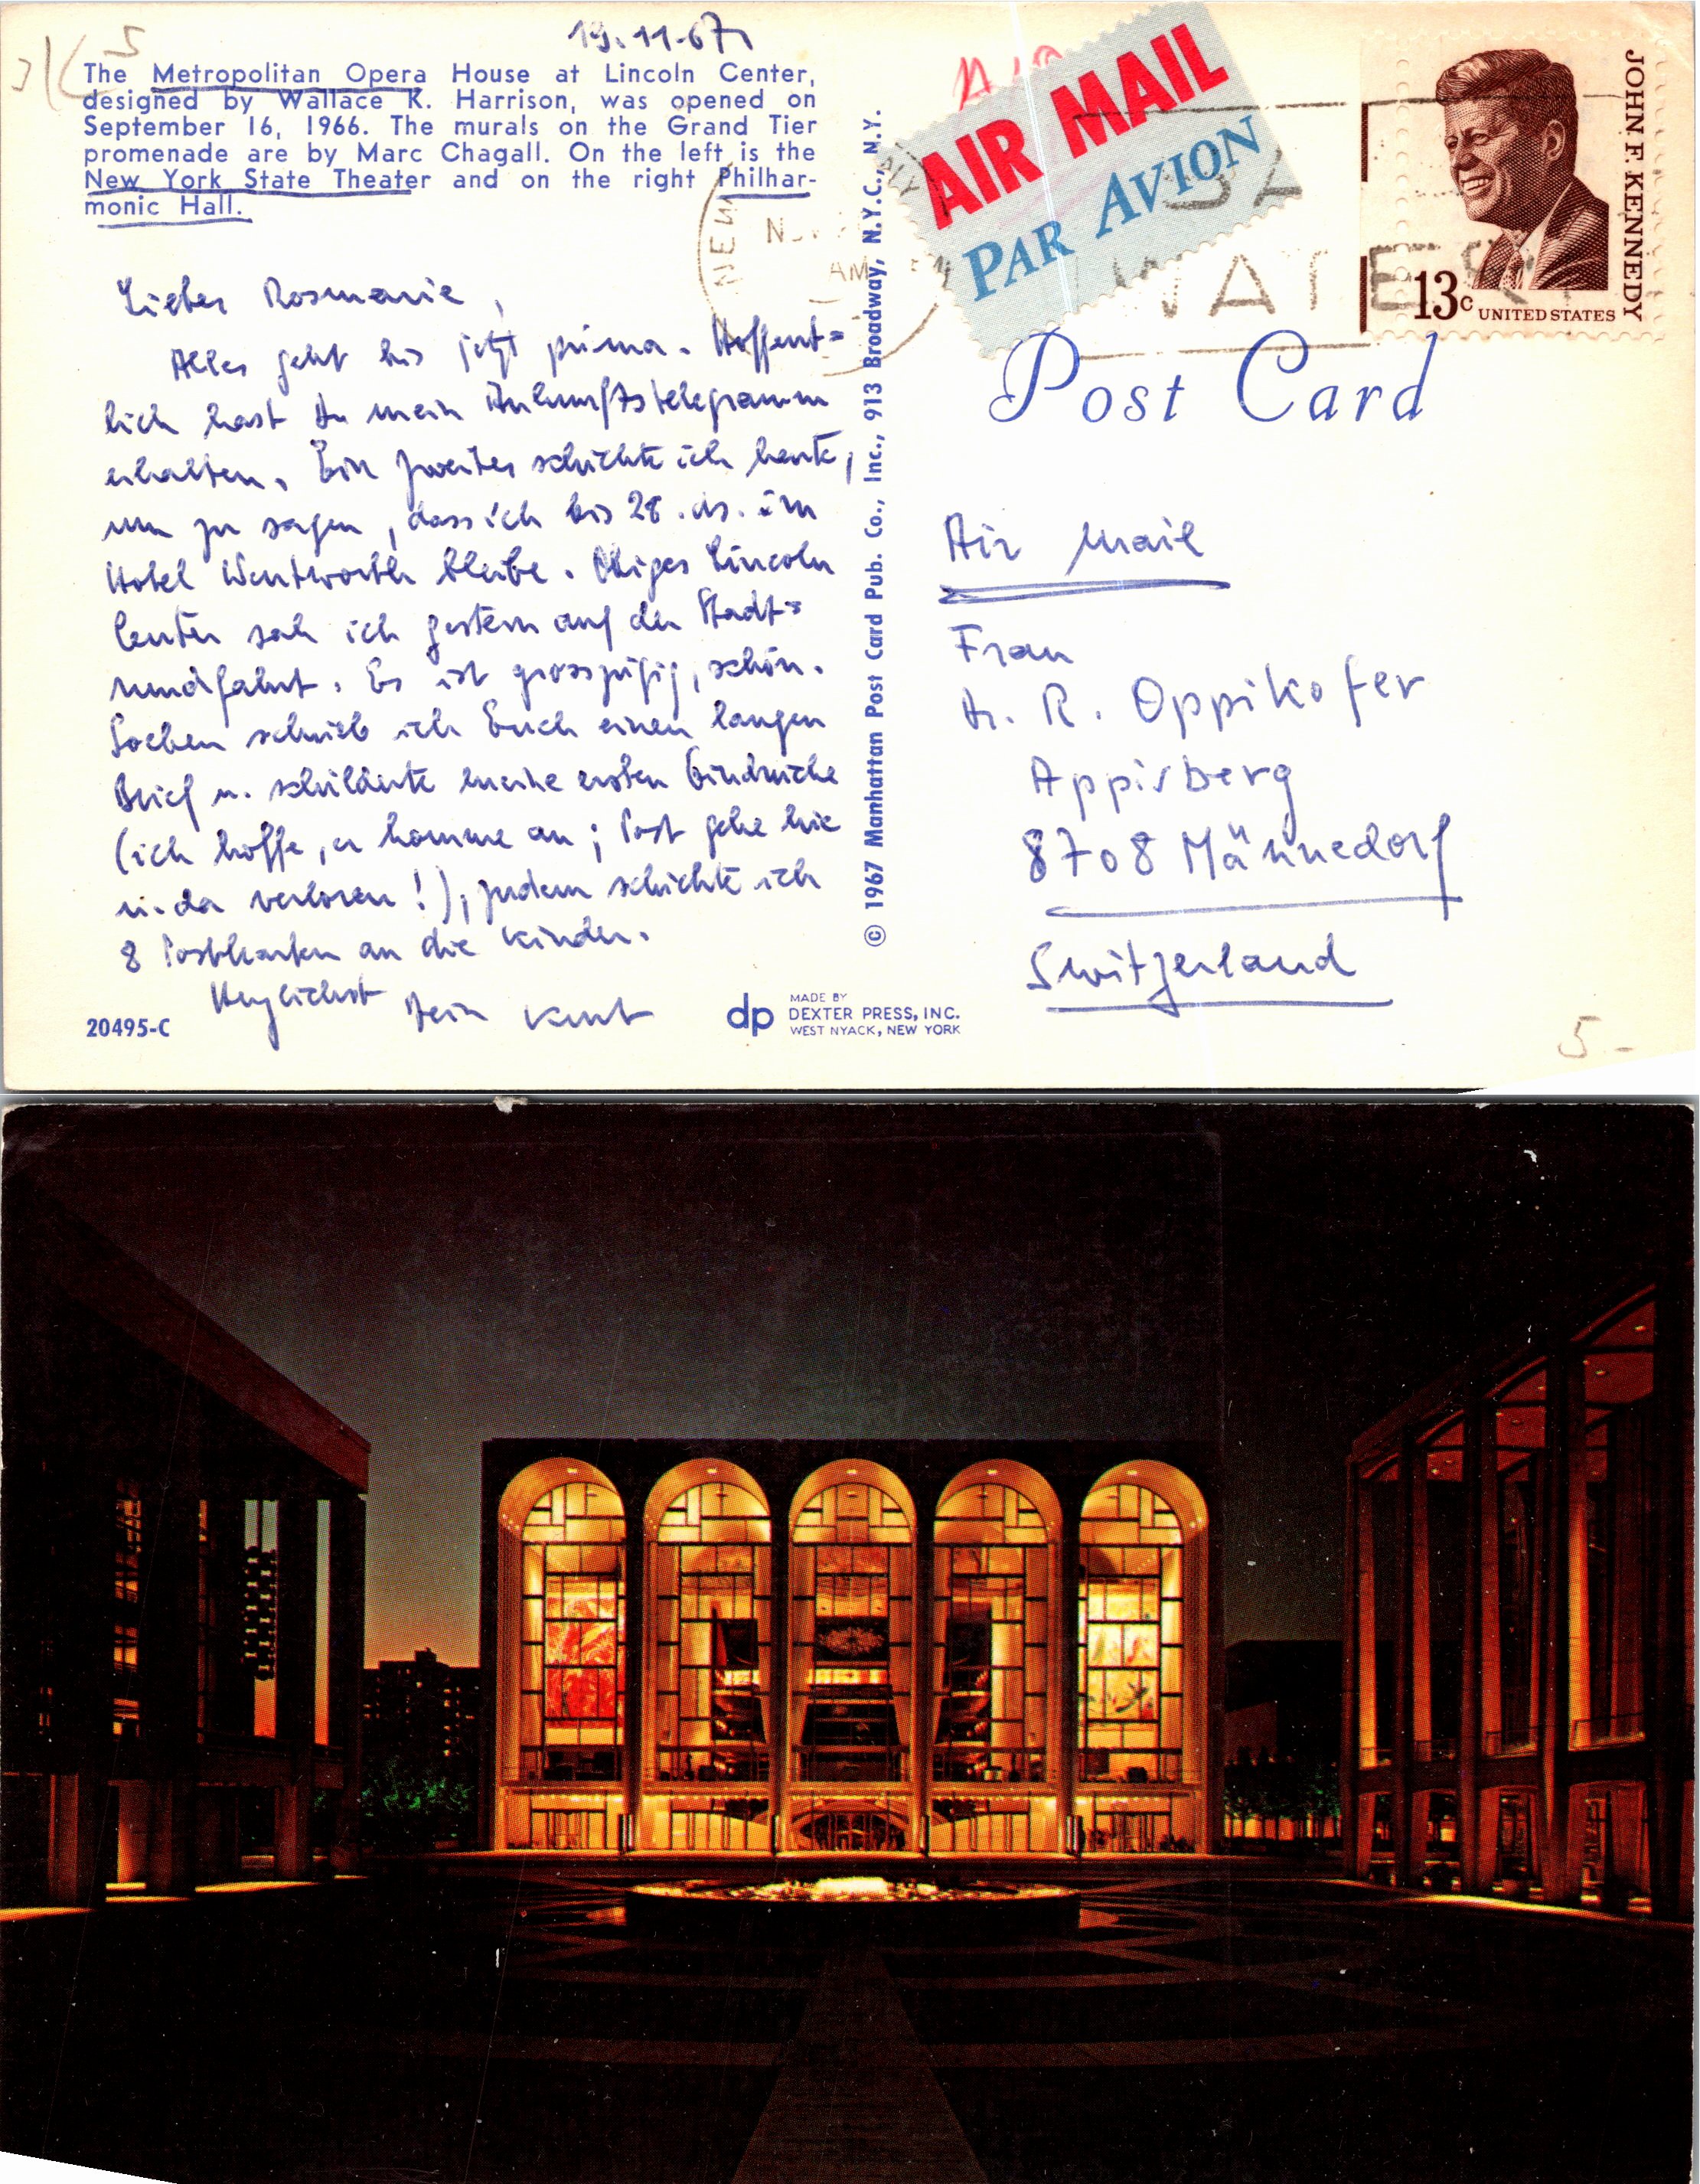 19.11.67
The Metropolitan Opera House at Lincoln Center,
designed by Wallace K. Harrison, was opened on
September 16, 1966. The murals on the Grand Tier
promenade are by Marc Chagall. On the left is the
New York State Theater and on the right Philhar-
monic Hall.
Liebes Rosmarie,
Alles geht bis jetzt prima. Hoffent=
lich hast Du mein Ankunftstelegramm
erhalten. Ein zweites schickte ich heute,
um zu sagen, dass ich bis 28. ds. im
Hotel Wentworth bleibe. Obiges Lincoln
Center sah ich gestern auf der Stadt=
rundfahrt. Es ist grosszügig, schön.
Soeben schrieb ich Euch einen langen
Brief u. schilderte meine ersten Eindrücke
(ich hoffe, er komme an; Post gehe hie
u. da verloren!), zudem schickte ich
8 Postkarten an die Kinder.
Herzlichst Dein Kurt
20495-C
dp
MADE BY
DEXTER PRESS, INC.
WEST NYACK, NEW YORK
© 1967 Manhattan Post Card Pub. Co., Inc., 913 Broadway, N.Y.C., N.Y.
AIR MAIL
PAR AVION
NEW
AM
WATER
JOHN F. KENNEDY
13c UNITED STATES
Post Card
Air Mail
Frau
Dr. R. Oppikofer
Appisberg
8708 Männedorf
Switzerland
5.-